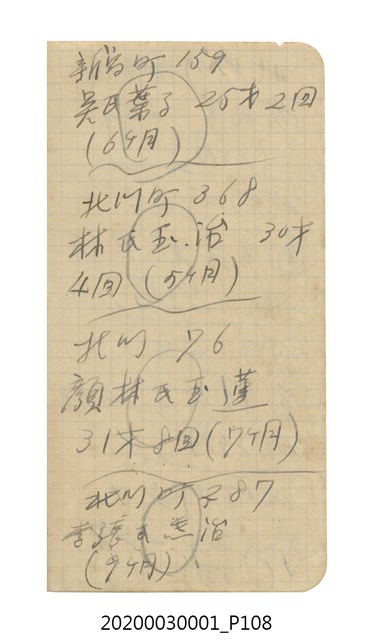 新富町 159
吳氏葉子 25才 2回
(6ケ月)
北川町 368
林氏玉治 30才
4回 (5ケ月)
北川 76
顏林氏玉蓮
31才 8回 (7ケ月)
北川町 287
李張氏 治
(9ケ月)
20200030001_P108